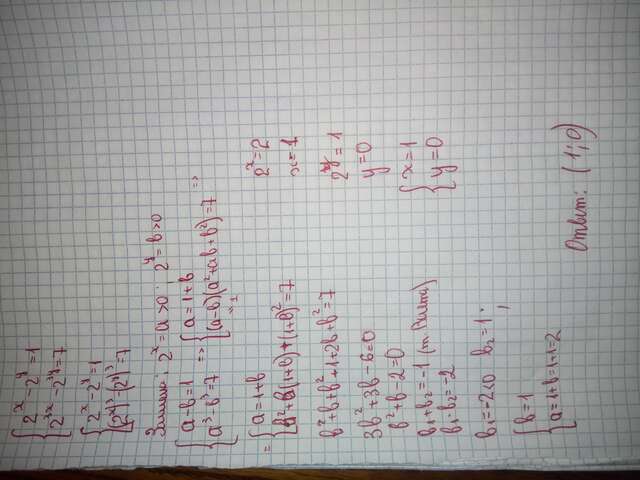 { 2^x - 2^y = 1
{ 2^3x - 2^3y = 7
{ 2^x - 2^y = 1
{ (2^x)^3 - (2^y)^3 = 7
Замена: 2^x = a > 0 ; 2^y = b > 0
{ a - b = 1 => { a = 1 + b
{ a^3 - b^3 = 7 { (a - b)(a^2 + ab + b^2) = 7 =>
" 1
= { a = 1 + b
{ b^2 + b(1 + b) + (1 + b)^2 = 7
b^2 + b + b^2 + 1 + 2b + b^2 = 7
3b^2 + 3b - 6 = 0
b^2 + b - 2 = 0
b1 + b2 = -1 (т. Виета)
b1 · b2 = -2
b1 = -2 < 0 b2 = 1 ;
{ b = 1
{ a = 1 + b = 1 + 1 = 2
2^x = 2
x = 1
2^y = 1
y = 0
{ x = 1
{ y = 0
Ответ: (1; 0)